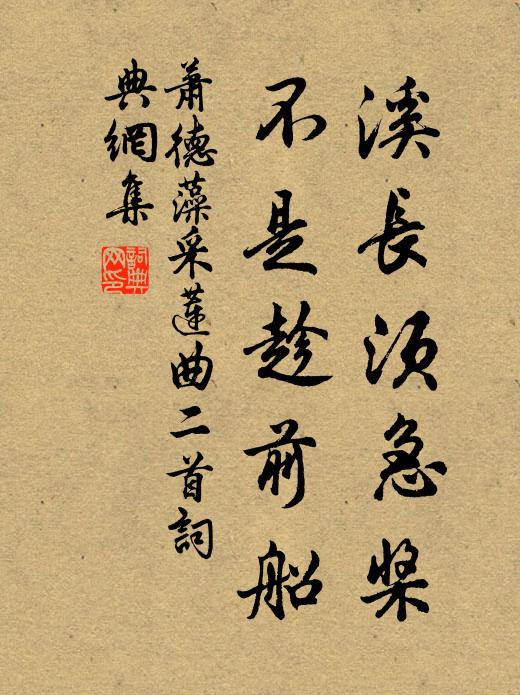 溪長須急槳
不是趁前船
蕭德藻采蓮曲二首詞
典網集
詞典
网印